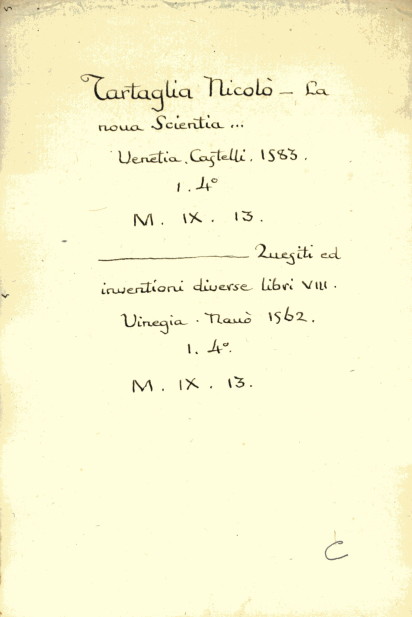 Tartaglia Nicolò – La
nova Scientia ...
Venetia. Castelli. 1583.
1. 4º
M. IX. 13.
———— Quesiti ed
inventioni diverse libri VIII.
Vinegia. Navò 1562.
1. 4º.
M. IX. 13.
C